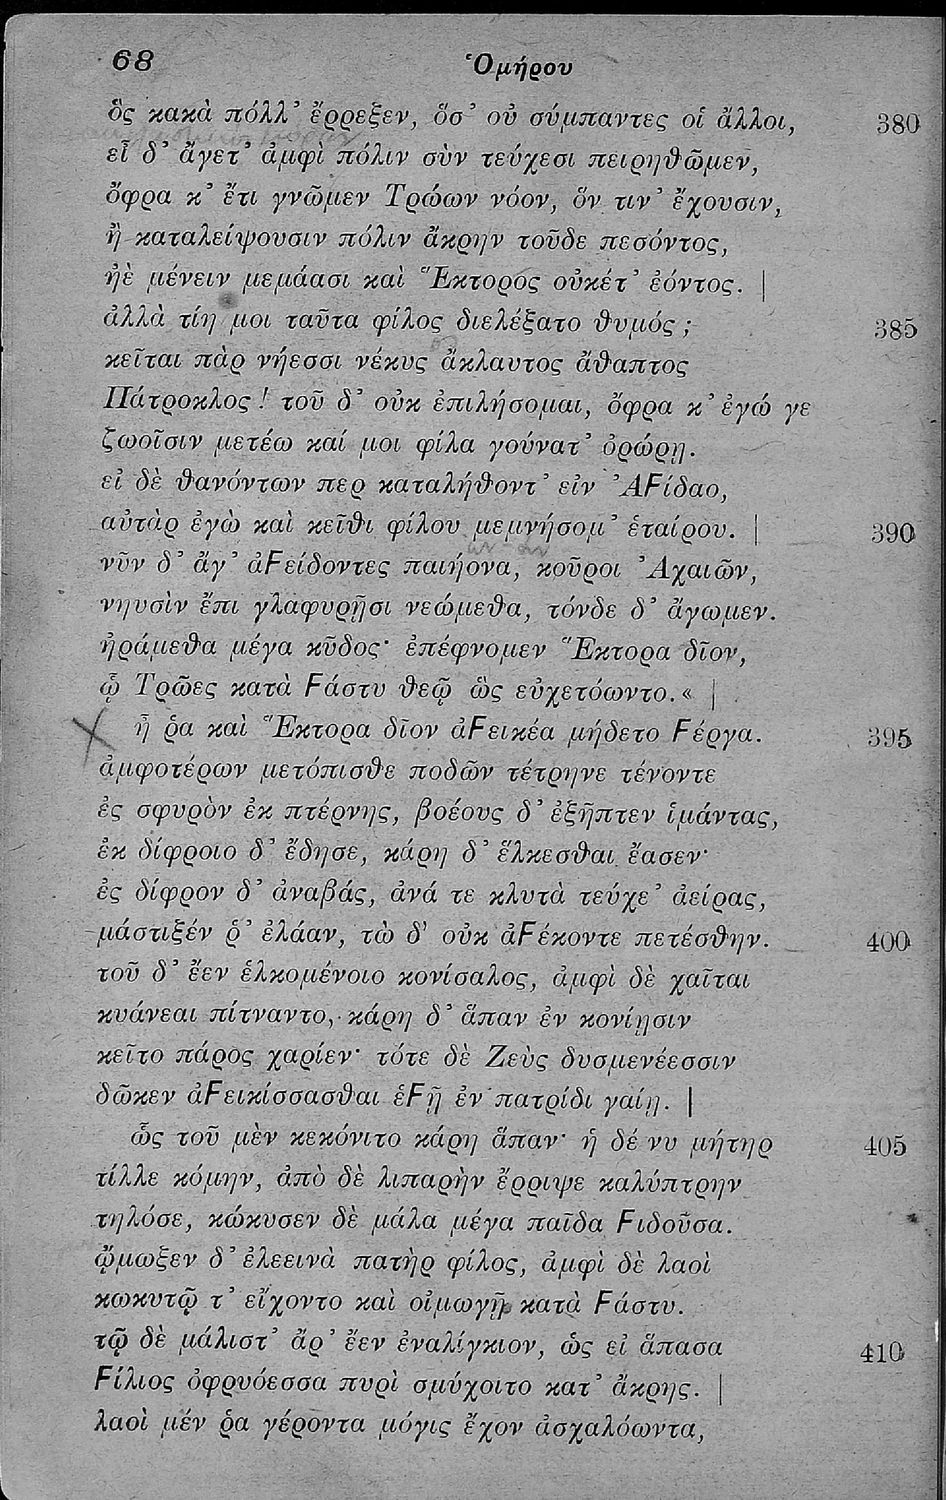 68 Ὁμήρου
ὃς κακὰ πόλλ’ ἔρρεξεν, ὅσ’ οὐ σύμπαντες οἱ ἄλλοι, 380
εἶ δ’ ἄγετ’ ἀμφὶ πόλιν σὺν τεύχεσι πειρηθῶμεν,
ὄφρα κ’ ἔτι γνῶμεν Τρώων νόον, ὅν τιν’ ἔχουσιν,
ἢ καταλείψουσιν πόλιν ἄκρην τοῦδε πεσόντος,
ἠὲ μένειν μεμάασι καὶ Ἕκτορος οὐκέτ’ ἐόντος. |
ἀλλὰ τίη μοι ταῦτα φίλος διελέξατο θυμός; 385
κεῖται πὰρ νήεσσι νέκυς ἄκλαυτος ἄθαπτος
Πάτροκλος! τοῦ δ’ οὐκ ἐπιλήσομαι, ὄφρα κ’ ἐγώ γε
ζωοῖσιν μετέω καί μοι φίλα γούνατ’ ὀρώρῃ.
εἰ δὲ θανόντων περ καταλήθοντ’ εἰν ἈϜίδαο,
αὐτὰρ ἐγὼ καὶ κεῖθι φίλου μεμνήσομ’ ἑταίρου. | 390
νῦν δ’ ἄγ’ ἀϜείδοντες παιήονα, κοῦροι Ἀχαιῶν,
νηυσὶν ἔπι γλαφυρῇσι νεώμεθα, τόνδε δ’ ἄγωμεν.
ἠράμεθα μέγα κῦδος· ἐπέφνομεν Ἕκτορα δῖον,
ᾧ Τρῶες κατὰ Ϝάστυ θεῷ ὣς εὐχετόωντο.« |
ἦ ῥα καὶ Ἕκτορα δῖον ἀϜεικέα μήδετο Ϝέργα. 395
ἀμφοτέρων μετόπισθε ποδῶν τέτρηνε τένοντε
ἐς σφυρὸν ἐκ πτέρνης, βοέους δ’ ἐξῆπτεν ἱμάντας,
ἐκ δίφροιο δ’ ἔδησε, κάρη δ’ ἕλκεσθαι ἔασεν·
ἐς δίφρον δ’ ἀναβάς, ἀνά τε κλυτὰ τεύχε’ ἀείρας,
μάστιξέν ῥ’ ἐλάαν, τὼ δ’ οὐκ ἀϜέκοντε πετέσθην. 400
τοῦ δ’ ἔεν ἑλκομένοιο κονίσαλος, ἀμφὶ δὲ χαῖται
κυάνεαι πίτναντο, κάρη δ’ ἅπαν ἐν κονίῃσιν
κεῖτο πάρος χαρίεν· τότε δὲ Ζεὺς δυσμενέεσσιν
δῶκεν ἀϜεικίσσασθαι ἑϜῇ ἐν πατρίδι γαίῃ. |
ὣς τοῦ μὲν κεκόνιτο κάρη ἅπαν· ἡ δέ νυ μήτηρ 405
τίλλε κόμην, ἀπὸ δὲ λιπαρὴν ἔρριψε καλύπτρην
τηλόσε, κώκυσεν δὲ μάλα μέγα παῖδα Ϝιδοῦσα.
ᾤμωξεν δ’ ἐλεεινὰ πατὴρ φίλος, ἀμφὶ δὲ λαοὶ
κωκυτῷ τ’ εἴχοντο καὶ οἰμωγῇ κατὰ Ϝάστυ.
τῷ δὲ μάλιστ’ ἄρ’ ἔεν ἐναλίγκιον, ὡς εἰ ἅπασα 410
Ϝίλιος ὀφρυόεσσα πυρὶ σμύχοιτο κατ’ ἄκρης. |
λαοὶ μέν ῥα γέροντα μόγις ἔχον ἀσχαλόωντα,